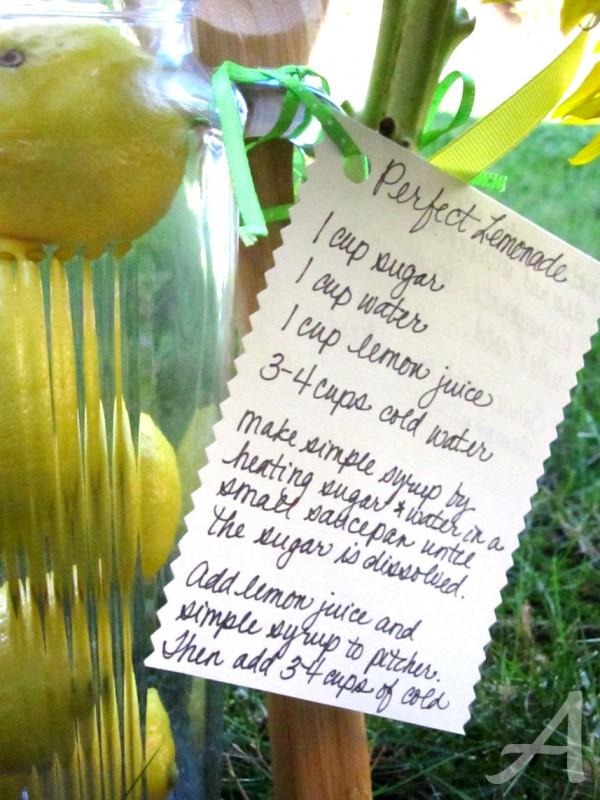 Perfect Lemonade
1 cup sugar
1 cup water
1 cup lemon juice
3-4 cups cold water
make simple syrup by
heating sugar & water in a
small saucepan until
the sugar is dissolved.
Add lemon juice and
simple syrup to pitcher.
Then add 3-4 cups of cold
A